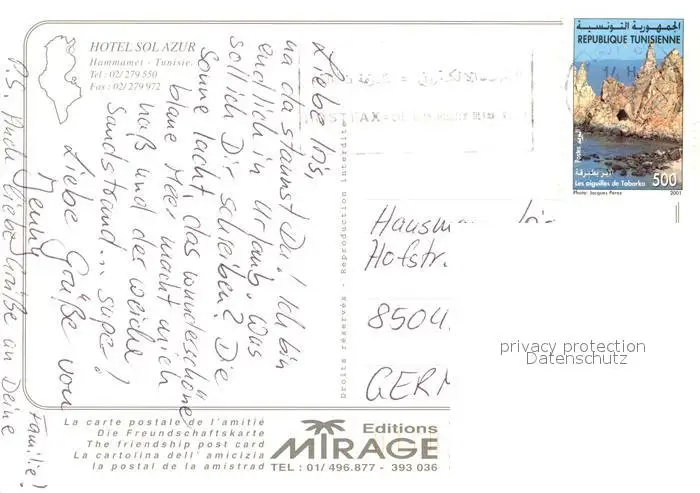 HOTEL SOL AZUR
Hammamet - Tunisie.
Tel : 02/ 279 550
Fax : 02/ 279 972
Liebe Iris,
na da staunst Du! Ich bin
endlich in Urlaub. Was
soll ich Dir schreiben? Die
Sonne lacht, das wunderschöne
blaue Meer macht mich
naß und der weiche
Sandstrand... super!
Liebe Grüße von
Jenny
P.S. Auch liebe Grüße an Deine
Familie!
Droits réservés - Reproduction Interdite
الجمهورية التونسية
REPUBLIQUE TUNISIENNE
Postes البريد
Les aiguilles de Tabarka 500
Photo: Jacques Perez 2001
Hofstr.
8504
GERM
privacy protection
Datenschutz
La carte postale de l'amitié
Die Freundschaftskarte
The friendship post card
La cartolina dell' amicizia
la postal de la amistrad
Editions
MIRAGE
TEL : 01/ 496.877 - 393 036